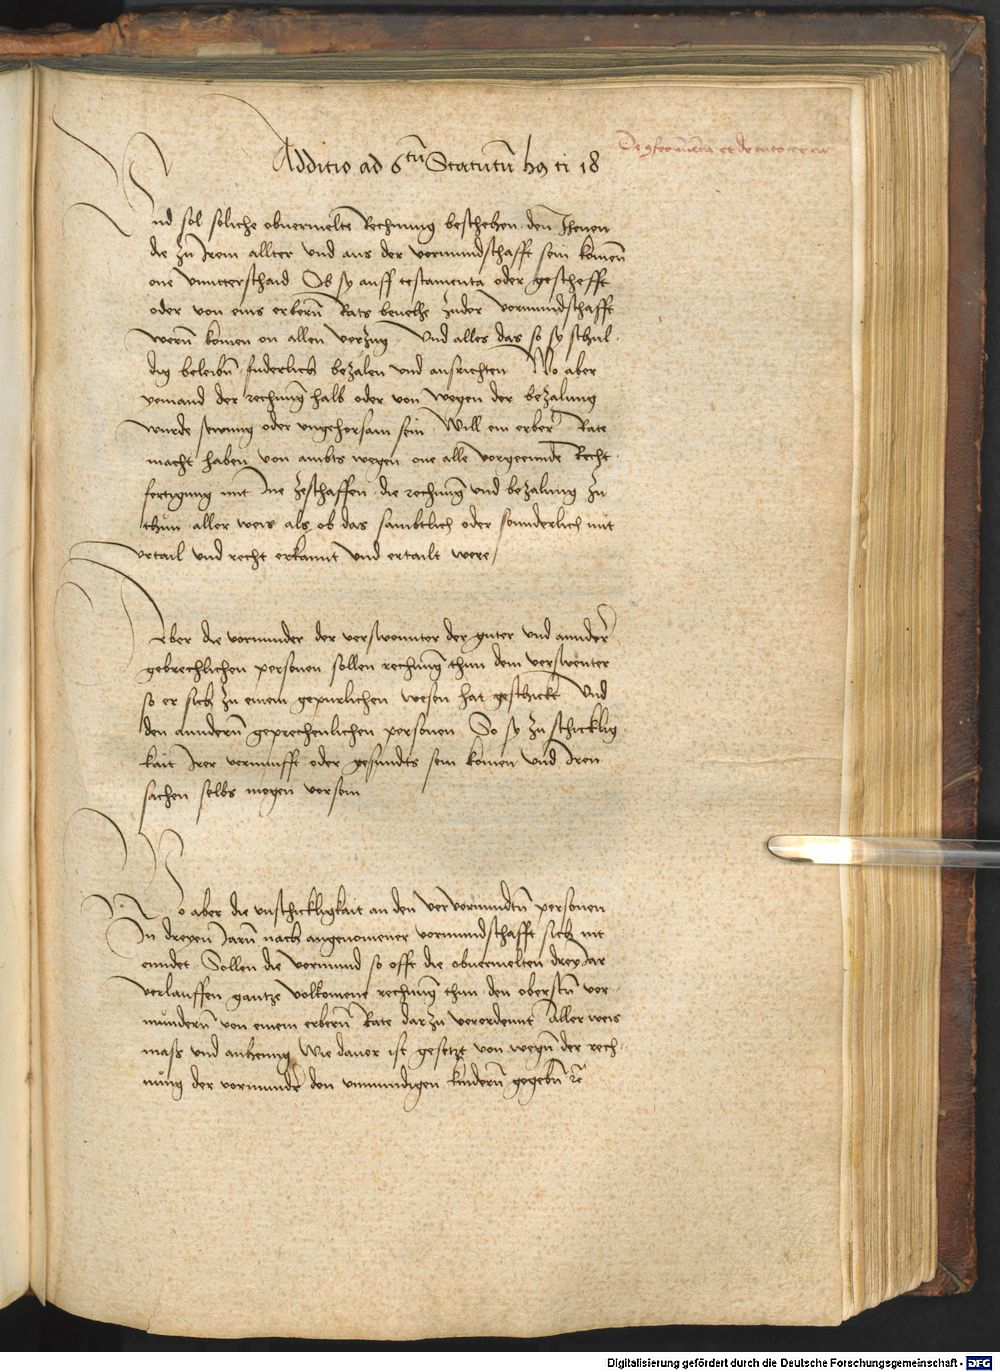 Additio ad 6tũ Statutũ h9 ti 18
Vnd sol soliche obuermelte Rechnung beschehen den Jhenen
die zu Jrem allter vnd aus der vormundschafft sein komen
one vnntterschaid Ob sy auff testamenta oder gescheft
oder von eins erbern Rats beuelhe zu der vormundschafft
wern komen on allen verzug Vnd alles das so sy schul
dig beleibn furderlich bezalen vnd ausrichten Wo aber
yemand der rechnung halb oder von wegen der bezalung
wurde sewmig oder vngehorsam sein Will ein erber Rate
macht haben von ambts wegen one alle vorgeennde Recht
fertigung mit Jne zeschaffen die rechnung vnd bezalung zu
thun aller weis als ob das sambtlich oder sonnderlich mit
vrtail vnd recht erkannt vnd ertailt were
Aber die vormunder der verswennter der guter vnd annder
gebrechlichen personen sollen rechnung thun dem verswenter
so er sich zu einem gepurlichen wesen hat geschickt Vnd
den anndern geprechenlichen personen So sy zu schicklig
kait Jrer vernunfft oder gesundts sein komen vnd Jren
sachen selbs mogen vorsein
Wo aber die vnschickligkait an den ververmundtn personen
Jn dreyen Jarn nach angenomener vormundschafft sich nit
enndet Sollen die vormund so offt die obuermelten drey Jar
verlauffen gantze volkomene rechnung thun den oberstn vor
mundern von einem erbern Rate darzu verordennt Aller weis
mass vnd anhenng Wie dauor ist gesetzt von wegn der rech
nung der vormunde den vnmundigen kindern gegebn
Digitalisierung gefördert durch die Deutsche Forschungsgemeinschaft - DFG